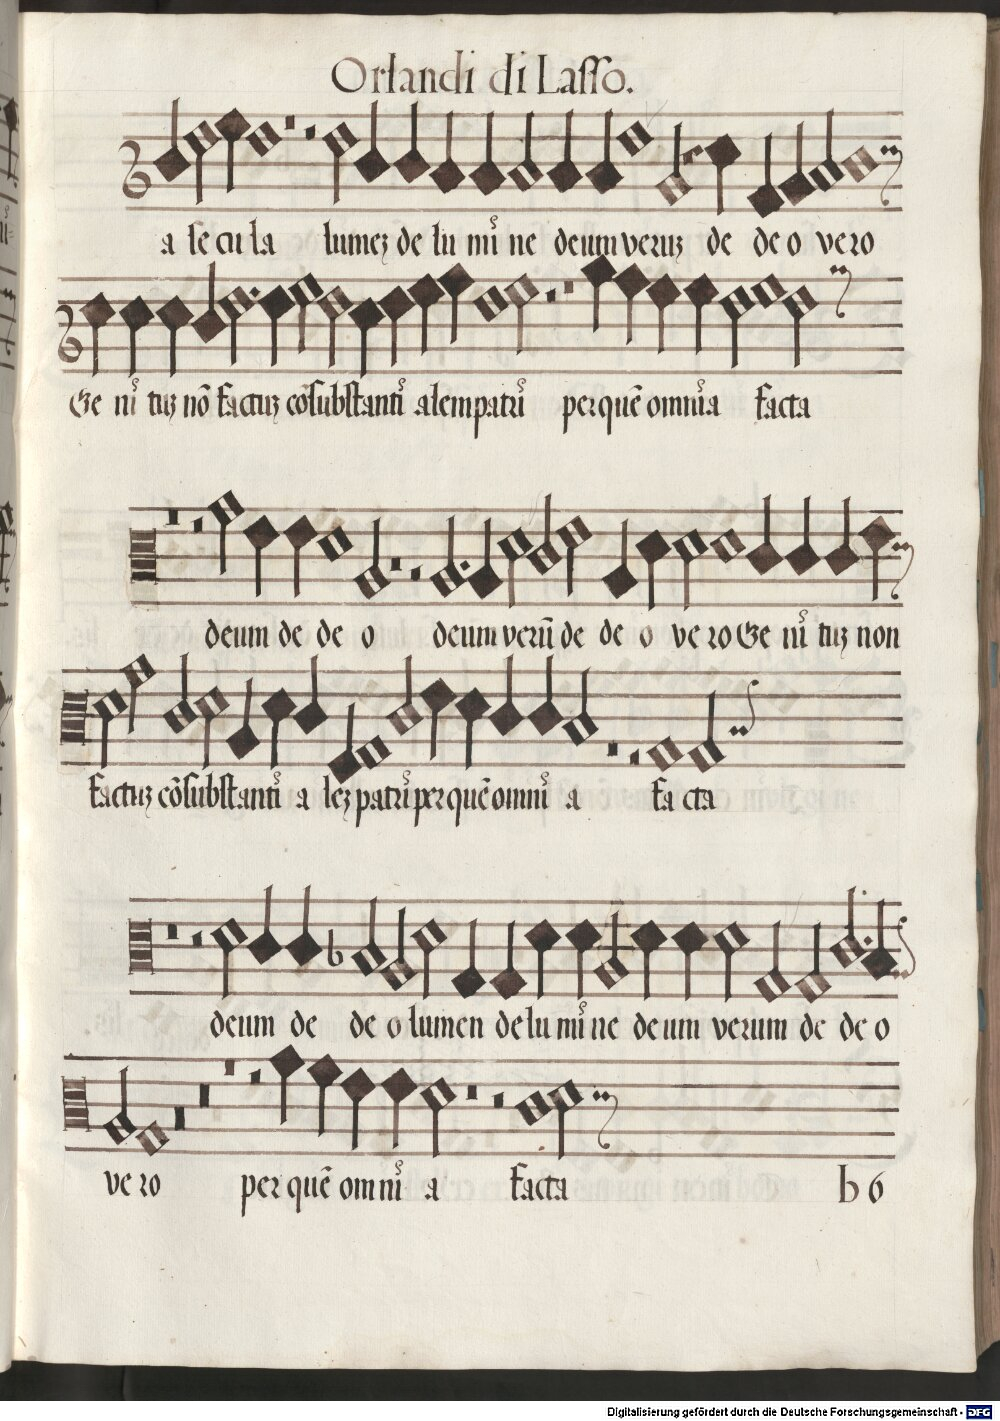 Orlandi di Lasso.
a secula lumez de lu mi ne deum veruz de de o vero
Ge ni tuz nō factuz cōsubstanti alem patri per quē omnia facta
deum de de o deum verū de de o ve ro Ge ni tuz non
factuz cōsubstanti a lez patri per quē omni a fa cta
deum de de o lumen de lu mi ne de um verum de de o
ve ro per quē omni a facta b 6
Digitalisierung gefördert durch die Deutsche Forschungsgemeinschaft - DFG